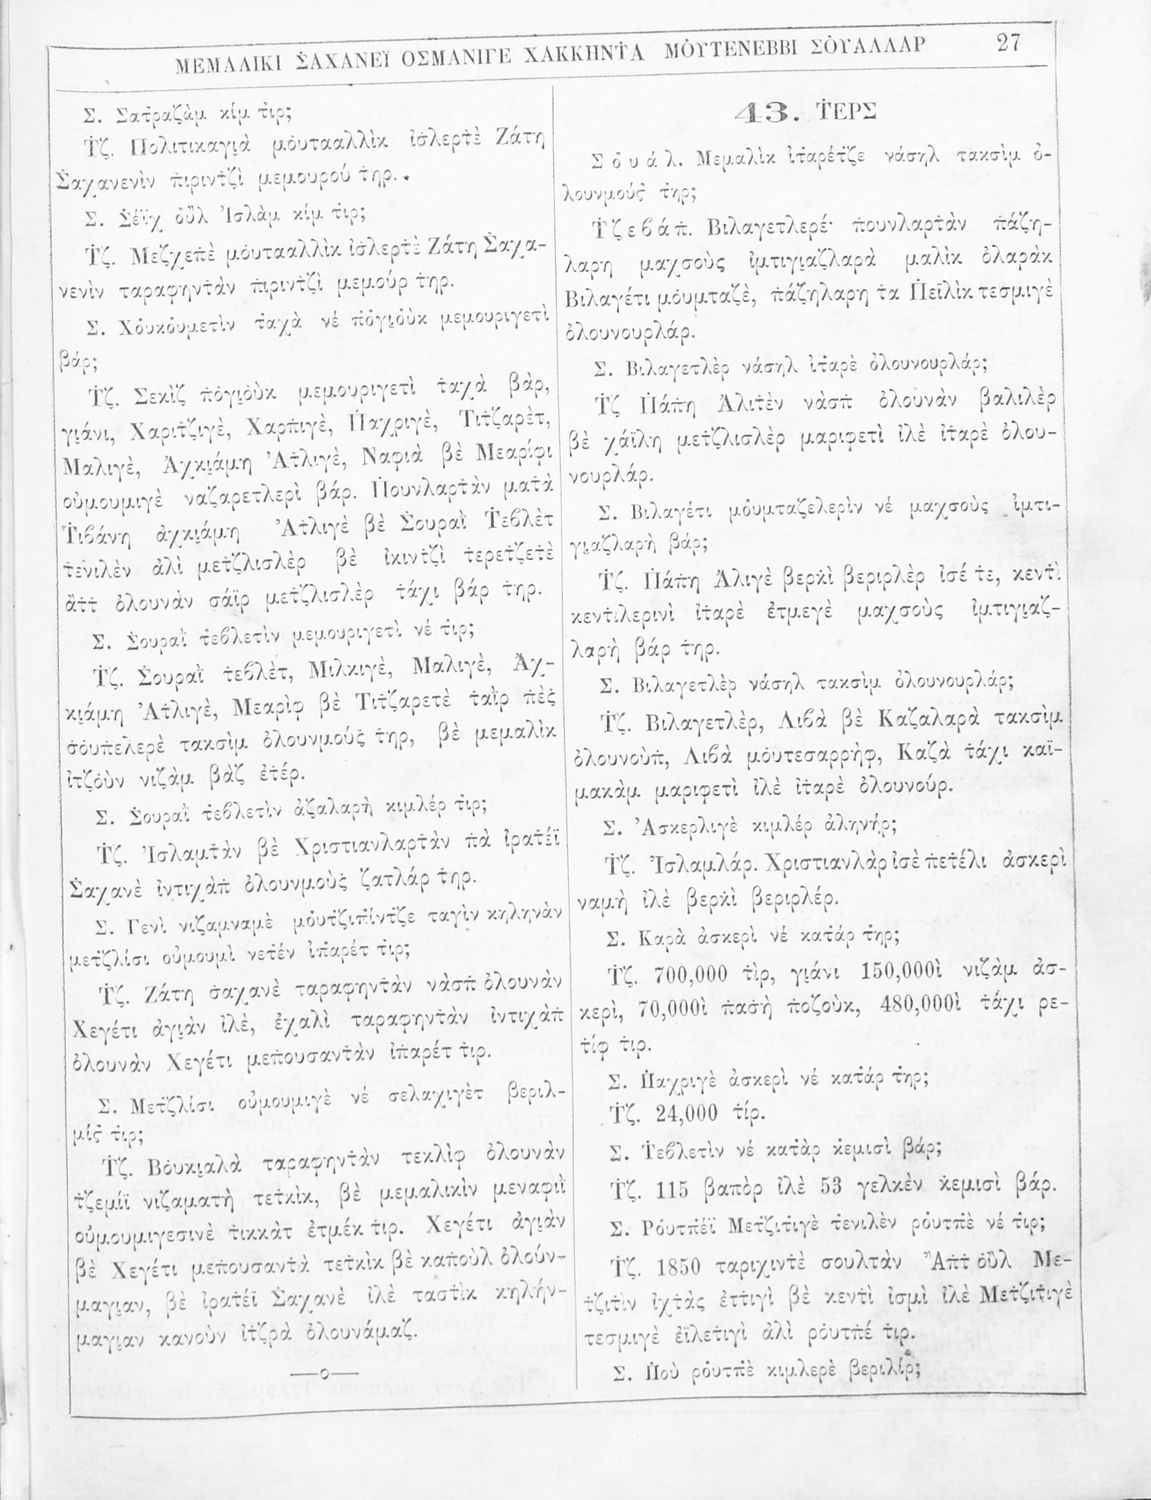 ΜΕΜΑΛΙΚΙ ΣΑΧΑΝΕΪ ΟΣΜΑΝΙΓΕ ΧΑΚΚΗΝΤΑ ΜΟΥΤΕΝΕΒΒΙ ΣΟΥΑΛΛΑΡ 27
Σ. Σατραζὰμ κίμ τιρ;
Ṫζ. Πολιτικαγιὰ μὀυτααλλὶκ ἰσλερτὲ Ζάτη
Ṡαχανενὶν πιριντζὶ μεμουροὺ τηρ.
Σ. Ṡέϊχ οὒλ Ἰσλὰμ κίμ τιρ;
Ṫζ. Μεζχεπὲ μὀυτααλλὶκ ἰσλερτὲ Ζάτη Ṡαχα-
νενὶν ταραφηντὰν πιριντζὶ μεμούρ τηρ.
Σ. Χὀυκὀυμετὶν ταχὰ νέ πὀγιὀὺκ μεμουριγετὶ
βάρ;
Ṫζ. Σεκὶζ πὀγιὀὺκ μεμουριγετὶ ταχὰ βὰρ,
γιάνι, Χαριτζιγὲ, Χαρπιγὲ, Παχριγὲ, Τιτζαρὲτ,
Μαλιγὲ, Ἀχκιάμη Ἀτλιγὲ, Ναφιὰ βὲ Μεαρίφι
οὐμουμιγὲ ναζαρετλερὶ βάρ. Πουνλαρτὰν ματὰ
Ṫιβάνη ἀχκιάμη Ἀτλιγὲ βὲ Ṡουραῒ Ṫεβλὲτ
τενιλὲν ἀλὶ μετζλισλὲρ βὲ ἰκιντζὶ τερετζετὲ
ἂττ ὀλουνὰν σάϊρ μετζλισλὲρ τάχι βάρ τηρ.
Σ. Ṡουραῒ τεβλετὶν μεμουριγετὶ νέ τιρ;
Ṫζ. Ṡουραῒ τεβλὲτ, Μιλκιγὲ, Μαλιγὲ, Ἀχ-
κιάμη Ἀτλιγὲ, Μεαρὶφ βὲ Τιτζαρετὲ ταῒρ πὲς
σὀυπελερὲ τακσὶμ ὀλουνμοὺς τηρ, βὲ μεμαλὶκ
ἰτζὀὺν νιζὰμ βὰζ ἐτέρ.
Σ. Ṡουραῒ τεβλετὶν ἀζαλαρὴ κιμλέρ τιρ;
Ṫζ. Ἰσλαμτὰν βὲ Χριστιανλαρτὰν πὰ ἰρατέϊ
Ṡαχανὲ ἰντιχὰπ ὀλουνμοὺς ζατλάρ τηρ.
Σ. Γενὶ νιζαμναμὲ μὀυτζιπίντζε ταγὶν κηληνὰν
μετζλίσι οὐμουμὶ νετέν ἰπαρέτ τιρ;
Ṫζ. Ζάτη σαχανὲ ταραφηντὰν νὰσπ ὀλουνὰν
Χεγέτι ἀγιὰν ἰλὲ, ἐχαλὶ ταραφηντὰν ἰντιχὰπ
ὀλουνὰν Χεγέτι μεπουσαντὰν ἰπαρέτ τιρ.
Σ. Μετζλίσι οὐμουμιγὲ νέ σελαχιγὲτ βεριλ-
μίς τιρ;
Ṫζ. Βὀυκιαλὰ ταραφηντὰν τεκλὶφ ὀλουνὰν
τζεμίϊ νιζαματὴ τετκὶκ, βὲ μεμαλικὶν μεναφιῒ
οὐμουμιγεσινὲ τικκὰτ ἐτμέκ τιρ. Χεγέτι ἀγιὰν
βὲ Χεγέτι μεπουσαντὰ τετκὶκ βὲ καποὺλ ὀλούν-
μαγιαν, βὲ ἰρατέϊ Ṡαχανὲ ἰλὲ ταστὶκ κηλήν-
μαγιαν κανοὺν ἰτζρὰ ὀλουνάμαζ.
43. ṪΕΡΣ
Σὀυάλ. Μεμαλὶκ ἰταρέτζε νάσηλ τακσὶμ ὀ-
λουνμούς τηρ;
Ṫζεβάπ. Βιλαγετλερέ· πουνλαρτὰν πάζη-
λαρη μαχσοὺς ἰμτιγιαζλαρὰ μαλὶκ ὀλαρὰκ
Βιλαγέτι μὀυμταζὲ, πάζηλαρη τα Πεϊλὶκ τεσμιγὲ
ὀλουνουρλάρ.
Σ. Βιλαγετλὲρ νάσηλ ἰταρὲ ὀλουνουρλάρ;
Ṫζ Πάπη Ἀλιτὲν νὰσπ ὀλουνὰν βαλιλὲρ
βὲ χάϊλη μετζλισλὲρ μαριφετὶ ἰλὲ ἰταρὲ ὀλου-
νουρλάρ.
Σ. Βιλαγέτι μὀυμταζελερὶν νέ μαχσοὺς ἰμτι-
γιαζλαρὴ βάρ;
Ṫζ. Πάπη Ἀλιγὲ βερκὶ βεριρλὲρ ἰσέ τε, κεντὶ
κεντιλερινὶ ἰταρὲ ἐτμεγὲ μαχσοὺς ἰμτιγιαζ-
λαρὴ βάρ τηρ.
Σ. Βιλαγετλὲρ νάσηλ τακσὶμ ὀλουνουρλάρ;
Ṫζ. Βιλαγετλὲρ, Λιβὰ βὲ Καζαλαρὰ τακσὶμ
ὀλουνοὺπ, Λιβὰ μὀυτεσαρρὴφ, Καζὰ τάχι καϊ-
μακὰμ μαριφετὶ ἰλὲ ἰταρὲ ὀλουνούρ.
Σ. Ἀσκερλιγὲ κιμλέρ ἀληνήρ;
Ṫζ. Ἰσλαμλάρ. Χριστιανλὰρ ἰσὲ πετέλι ἀσκερὶ
ναμὴ ἰλὲ βερκὶ βεριρλέρ.
Σ. Καρὰ ἀσκερὶ νέ κατάρ τηρ;
Ṫζ. 700,000 τὶρ, γιάνι 150,000ὶ νιζὰμ ἀσ-
κερὶ, 70,000ὶ πασὴ ποζοὺκ, 480,000ὶ τάχι ρε-
τίφ τιρ.
Σ. Παχριγὲ ἀσκερὶ νέ κατάρ τηρ;
Ṫζ. 24,000 τίρ.
Σ. Ṫεβλετὶν νέ κατὰρ κεμισὶ βάρ;
Ṫζ. 115 βαπὸρ ἰλὲ 53 γελκὲν κεμισὶ βάρ.
Σ. Ρὀυτπέϊ Μετζιτιγὲ τενιλὲν ρὀυτπὲ νέ τιρ;
Ṫζ. 1850 ταριχιντὲ σουλτὰν Ἂπτ οὒλ Με-
τζιτὶν ἰχτὰς ἐττιγὶ βὲ κεντὶ ἰσμὶ ἰλὲ Μετζιτιγὲ
τεσμιγὲ ἐϊλετιγὶ ἀλὶ ρὀυτπέ τιρ.
Σ. Ποὺ ρὀυτπὲ κιμλερὲ βεριλίρ;